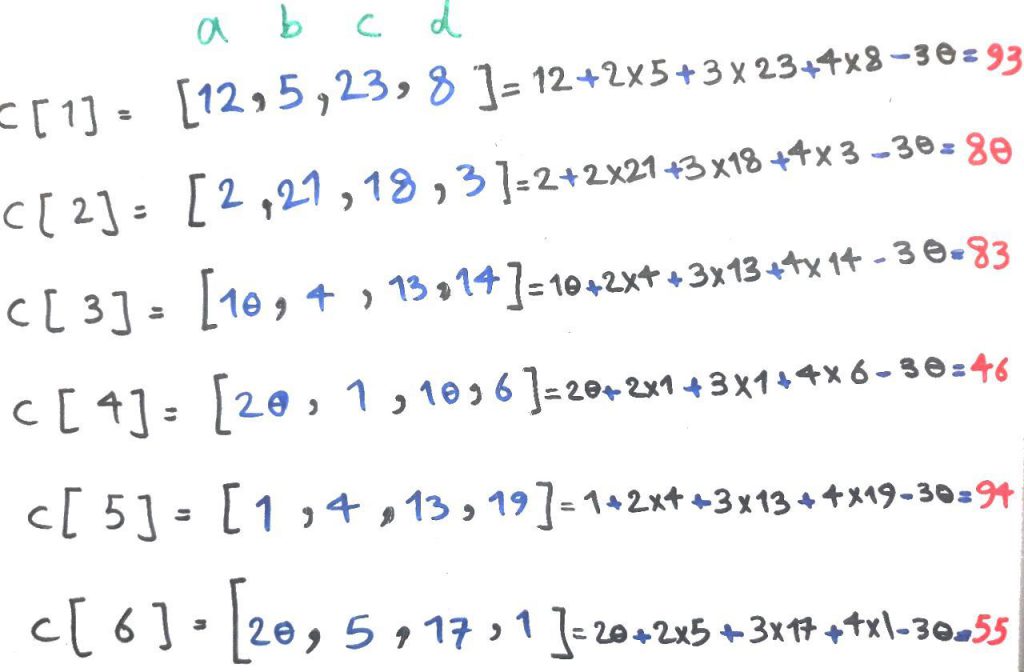 a b c d
C[1] = [12, 5, 23, 8] = 12+2x5+3x23+4x8-30=93
C[2] = [2, 21, 18, 3] = 2+2x21+3x18+4x3-30=80
C[3] = [10, 4, 13, 14] = 10+2x4+3x13+4x14-30=83
C[4] = [20, 1, 10, 6] = 20+2x1+3x1+4x6-30=46
C[5] = [1, 4, 13, 19] = 1+2x4+3x13+4x19-30=94
C[6] = [20, 5, 17, 1] = 20+2x5+3x17+4x1-30=55